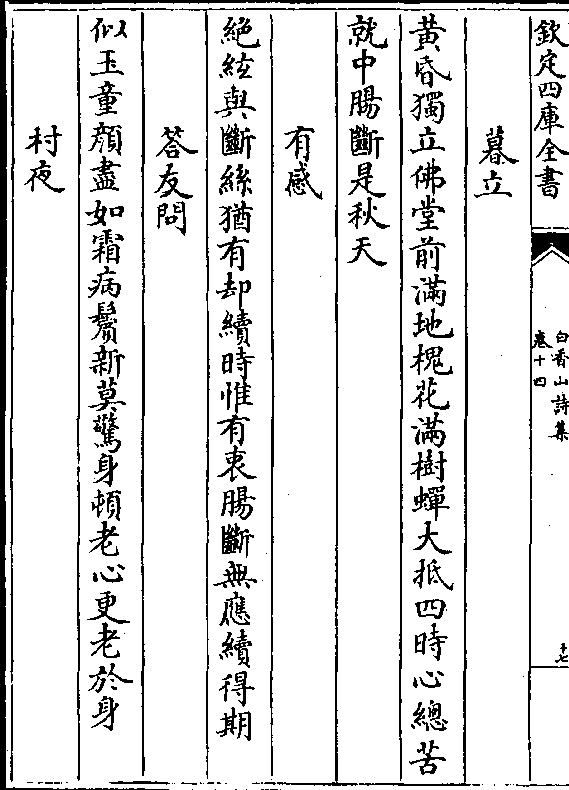 欽定四庫全書
白香山詩集
卷十四
十七
暮立
黃昏獨立佛堂前滿地槐花滿樹蟬大抵四時心總苦
就中腸斷是秋天
有感
絕絃與斷絲猶有却續時惟有衷腸斷無應續得期
答友問
似玉童顔盡如霜病鬢新莫驚身頓老心更老於身
村夜